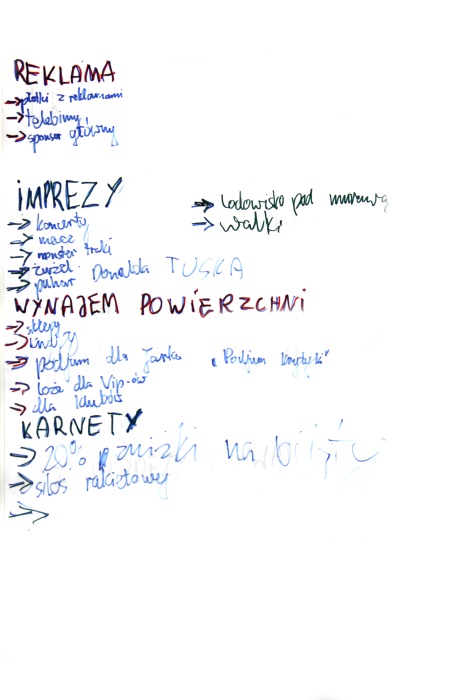 REKLAMA
→ płotki z reklamami
→ telebimy
→ sponsor główny
IMPREZY
→ koncerty
→ mecze
→ monster traki
→ żużel
→ puhar Donalda TUSKA
→ lodowisko pod murawą
→ walki
WYNAJEM POWIERZCHNI
→ sklepy
→
→ podium dla Jarka „Podjum
→ loża dla Vip-ów
→ dla klubów
KARNETY
→ 20% zniżki na
→ silos rakietowy
→